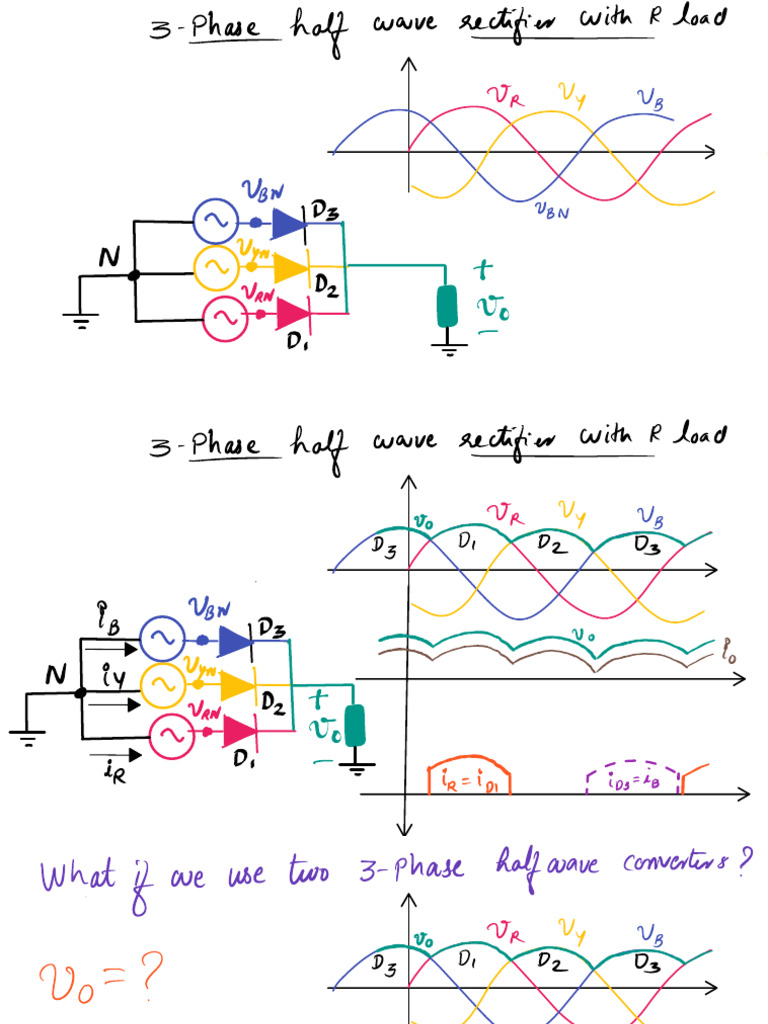 3-Phase half wave rectifier with R load
V_R V_Y V_B
V_BN
V_BN D3
N V_YN D2
V_RN D1
+
v_o
−
3-Phase half wave rectifier with R load
v_o V_R V_Y V_B
D3 D1 D2 D3
i_B V_BN D3
v_o
i_o
N i_Y V_YN D2
+
v_o
−
V_RN D1
i_R
i_R = i_D1 i_D3 = i_B
What if we use two 3-Phase half wave converters?
v_o V_R V_Y V_B
D3 D1 D2 D3
v_o = ?